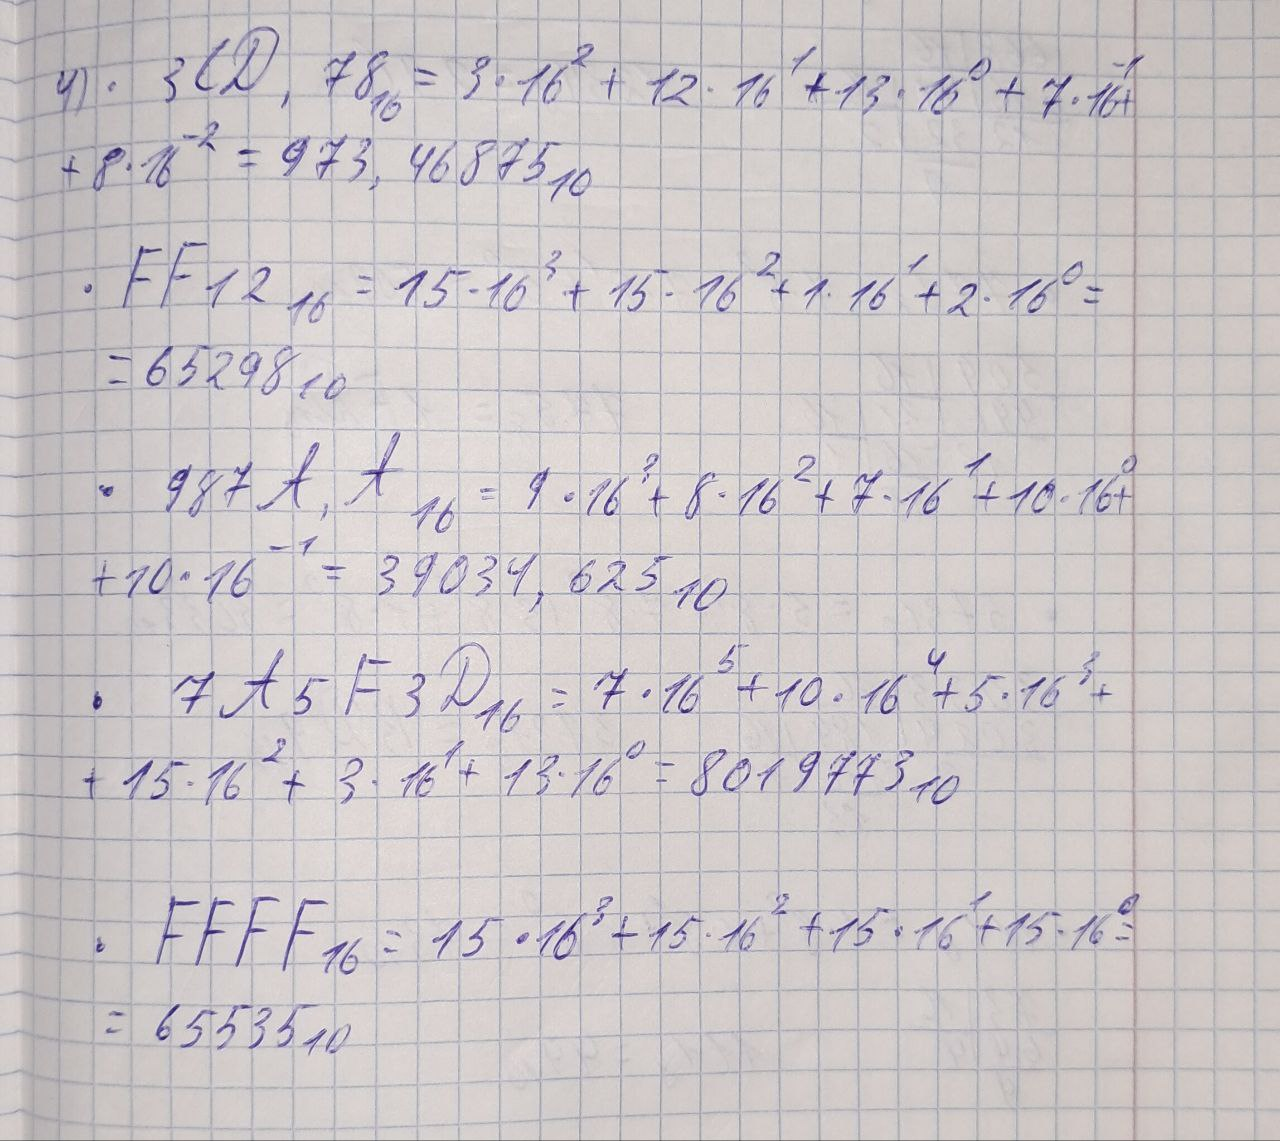 4) · 3CD,78₁₆ = 3·16² + 12·16¹ + 13·16⁰ + 7·16⁻¹+
+ 8·16⁻² = 973,46875₁₀
· FF12₁₆ = 15·16³ + 15·16² + 1·16¹ + 2·16⁰ =
= 65298₁₀
· 987A,A₁₆ = 9·16³ + 8·16² + 7·16¹ + 10·16⁰+
+ 10·16⁻¹ = 39034,625₁₀
· 7A5F3D₁₆ = 7·16⁵ + 10·16⁴ + 5·16³ +
+ 15·16² + 3·16¹ + 13·16⁰ = 8019773₁₀
· FFFF₁₆ = 15·16³ + 15·16² + 15·16¹ + 15·16⁰ =
= 65535₁₀